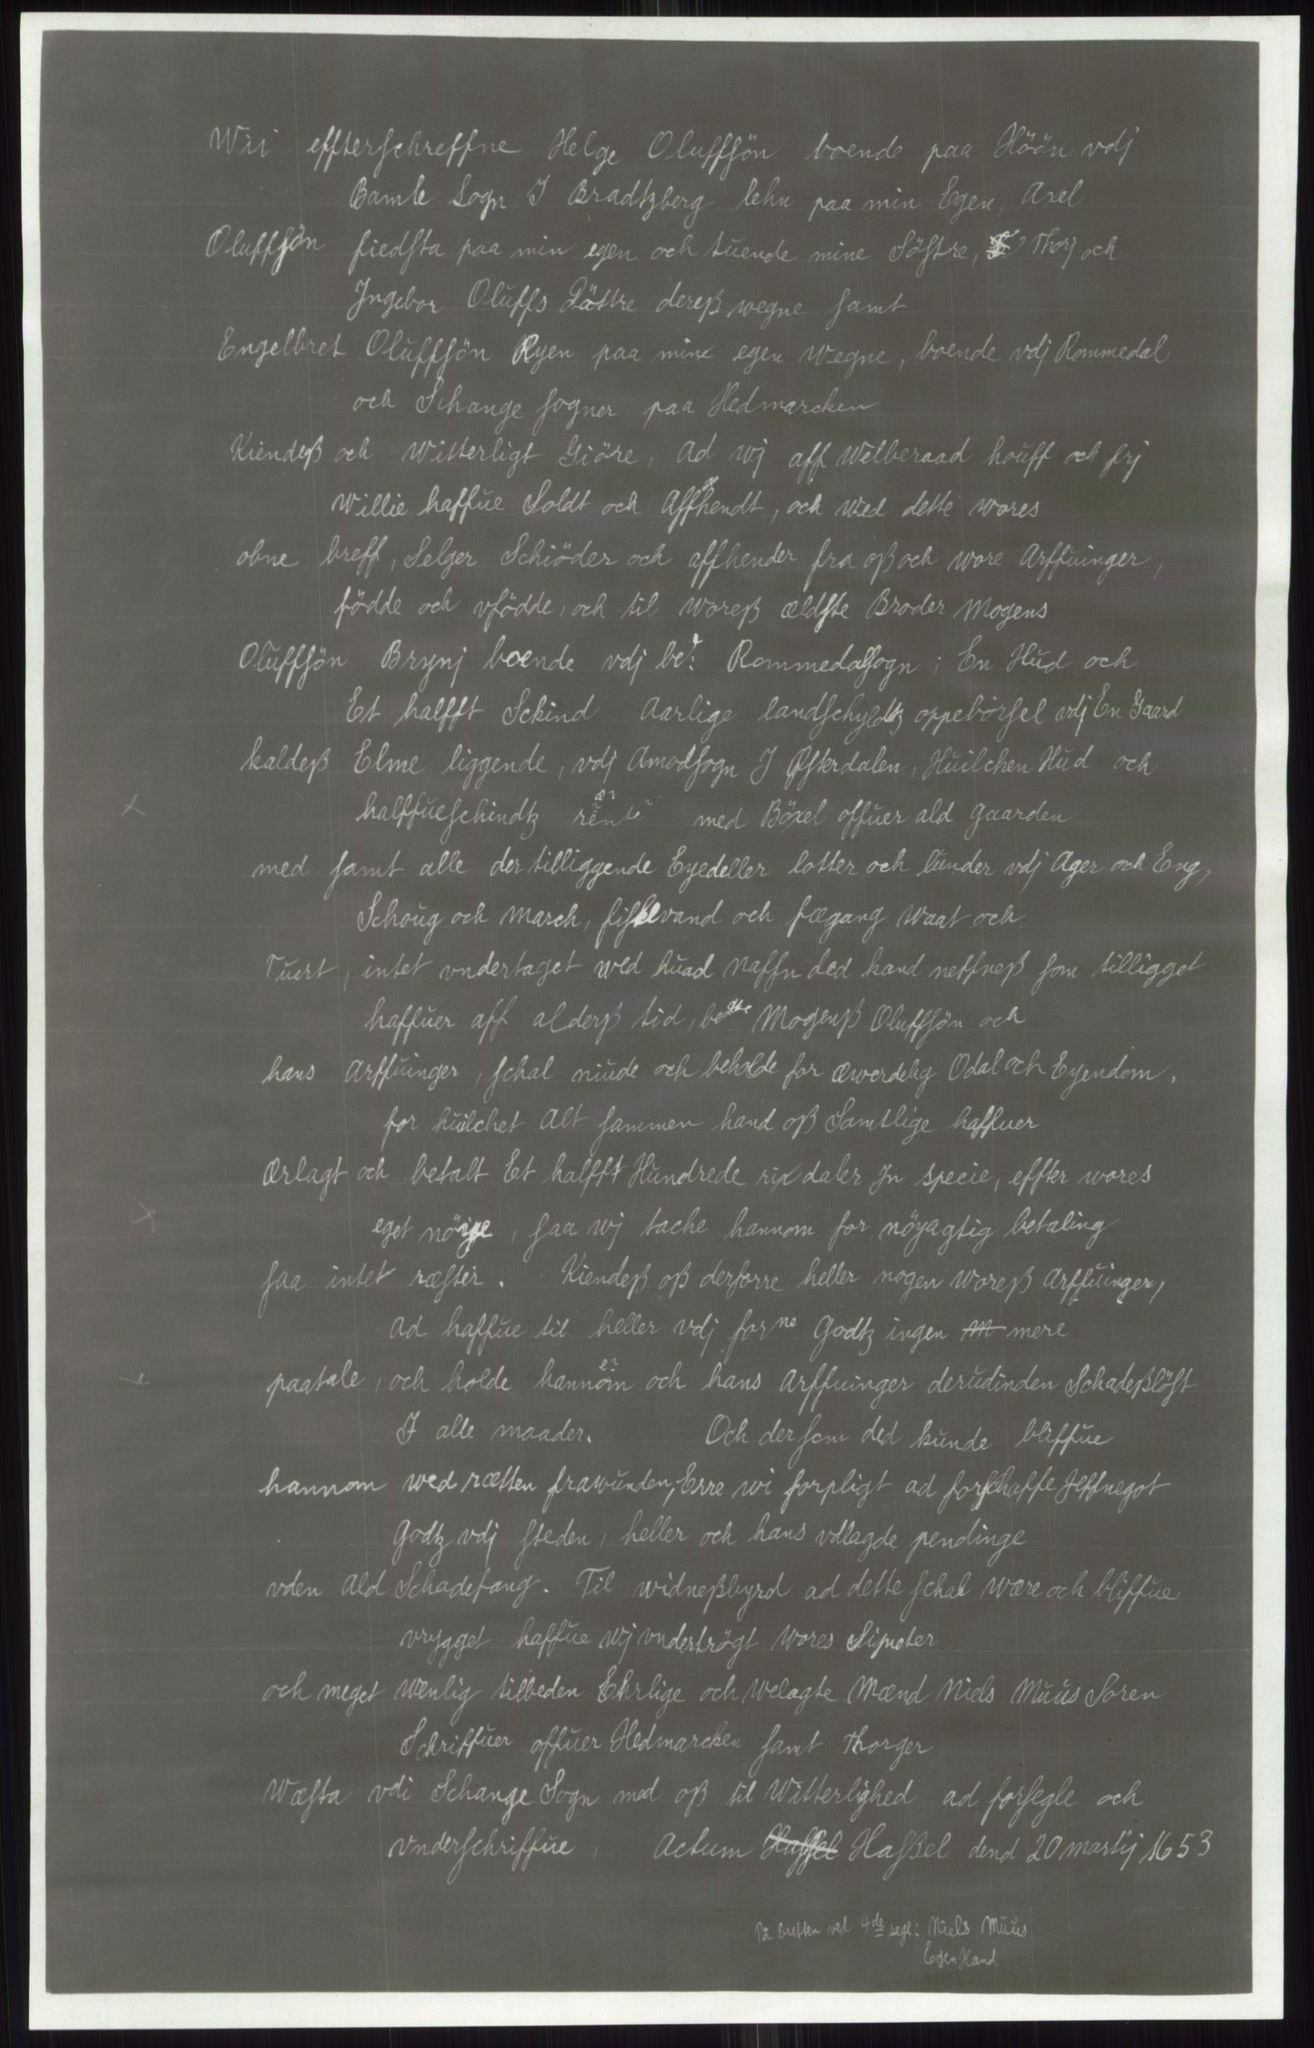 Wii effterschreffne Helge Oluffsön boende paa Höön vdj
Bamle Sogn J Bradtzberg lehn paa min Egen, Axel
Oluffsön fiedsta paa min egen och tuende mine Söstre, Thorj och
Jngebor Oluffs Döttre dereß wegne samt
Engelbret Oluffsön Ryen paa min egen wegne, boende vdj Rommedal
och Schange sogner paa Hedmarcken
Kiendeß och Witterligt Giöre, Ad wj aff Welberaad houff och frj
Willie haffue Soldt och Affhendt, och wed dette wores
obne breff, Selger Schiöder och affhender fra oß och wore Arffuinger,
födde och vfödde, och til woreß ældste Broder Mogens
Oluffsön Brynj boende vdj bet: Rommedalsogn; En Hud och
Et halfft Sckind Aarlige landschyldtz oppebörsel vdj En Gaard
kaldeß Elme liggende, vdj Amodsogn J Østerdalen, Huilchen Hud och
halffueschindtz rente med Böxel offuer ald gaarden
med samt alle der tilliggende Eyedeller lotter och lunder vdj Ager och Eng,
Schoug och march, fiskevand och fægang waat och
Tuert, intet vndertaget wed huad naffn ded kand neffneß som tilligget
haffuer aff alderß tid, bedte Mogenß Oluffsön och
hans Arffuinger, schal niude och beholde for æwerdelig Odal och Eyendom.
for huilchet Alt sammen hand oß Samtlige haffuer
Ærlagt och betalt Et halfft Hundrede rix daler Jn specie, effter wores
eget nöige, saa wj tache hannom for nöyagtig betaling
saa intet ræster. Kiendeß oß derforre heller nogen woreß Arffuinger,
Ad haffue til heller vdj forne Godtz ingen mere
paatale, och holde hannom och hans Arffuinger derudinden Schadeßlöst
J alle maader. Och dersom ded kunde bliffue
hannom wed rætten frawunden, Erre wi forpligt ad forschaffe Jeffnegot
Godtz vdj steden, heller och hans vdlagde pendinge
vden Ald Schadefang. Til widneßbyrd ad dette schal wære och bliffue
vrygget haffue wj vndertrögt wores Signeter
och meget wenlig tilbeden Ehrlige och welagte Mænd Niels Muus Soren
Schriffuer offuer Hedmarcken samt Thorger
Wæsta vdi Schange Sogn med oß til Witterlighed ad forsegle och
vnderschriffue, Actum Haßel dend 20 martij 1653
På bretten ved 4de segl: Niels Muus
Egen Hand